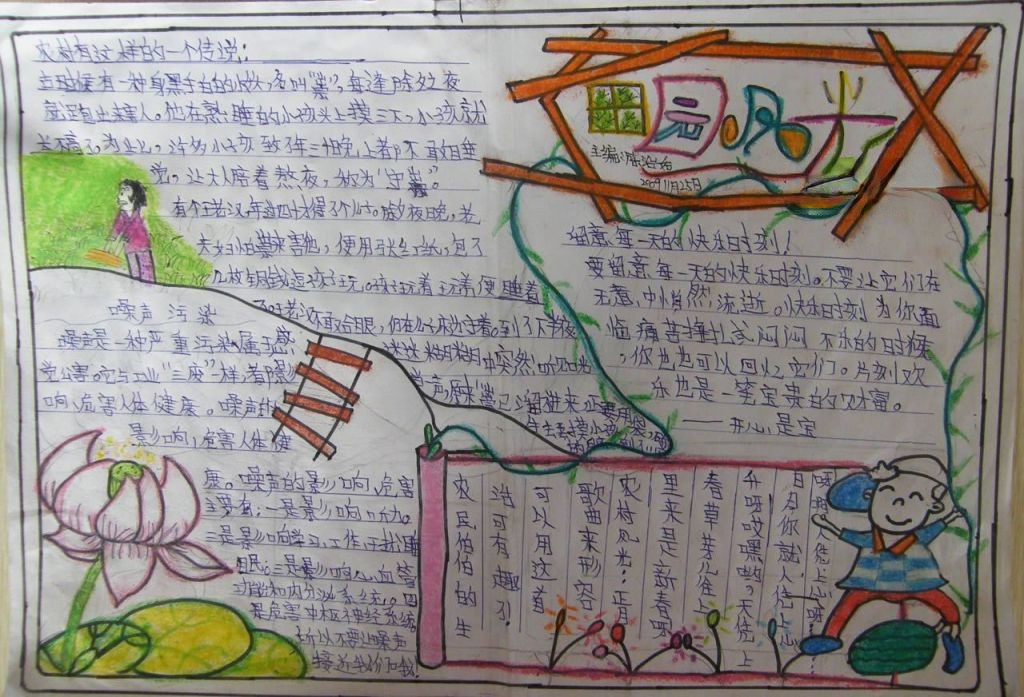 农村有这样的一个传说：
古时候有一种身黑手白的小妖，名叫“祟”，每逢除夕之夜
就跑出来害人。他在熟睡的小孩头上摸三下，小孩就
为止，许多小孩到年三十晚上都不敢自睡
觉。让大人陪着熬夜，称为“守岁”。
有个王老汉，年过四十才得了个儿子。除夕夜晚，老
夫妇怕祟来害他，便用一张红纸，包了
几枚铜钱逗孩子玩。孩子玩着玩着便睡着
了。王老汉不敢合眼，但在儿子床头守着。到了下半夜
迷迷糊糊中突然听见
声，原来祟已溜进来，正要用
手去摸小孩
噪声污染
噪声是一种严重污染，属于感
觉公害。它与工业“三废”一样，有影
响，危害人体健康。噪声
影响，危害人体健
康。噪声的影响、危害
主要有：一是影响听力。
二是影响学习、工作，干扰睡
眠；三是影响心血管
功能和内分泌系统。四
是危害中枢神经系统。
所以不要让噪声
接近我们和我！
田园风光
主编：
2009 11月25日
留意每一天的快乐时刻！
要留意每一天的快乐时刻。不要让它们在
无意中悄然流逝。快乐时刻为你面
临痛苦挣扎或闷闷不乐的时候
，你也也可以回忆它们。片刻欢
乐也是一笔宝贵的财富。
——开心是宝
农民伯伯的生
活可有趣！
可以用这首
歌曲来形容
农村风光：正月
里来是新春呀
春草芽儿往上
升呀哎嘿哟？天凭上
日月你就人凭心